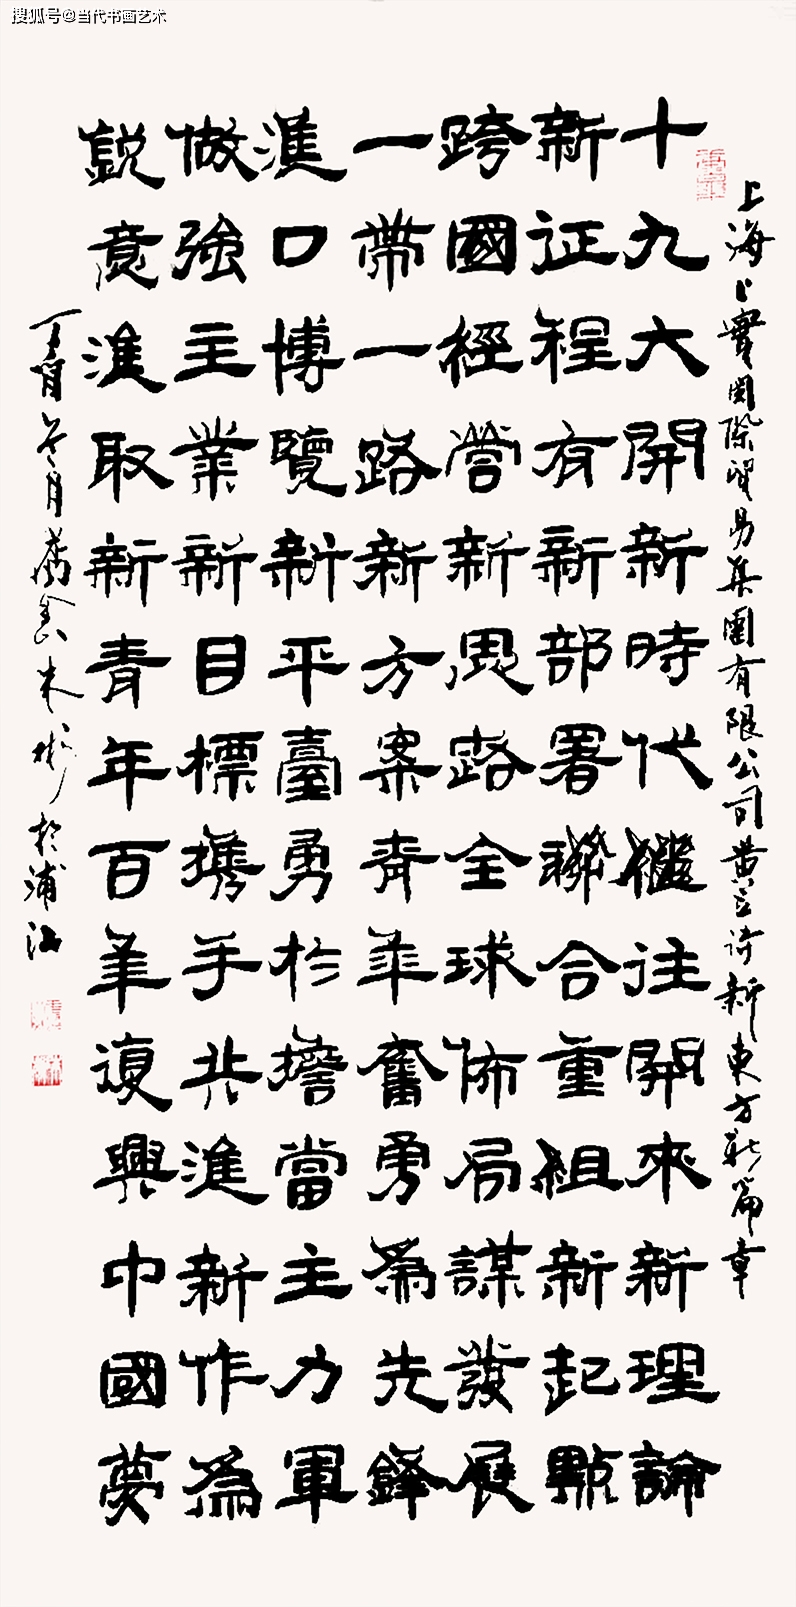 搜狐号@当代书画艺术
上海上實國際貿易集團有限公司黄立许新東方新篇章
十九大開新時代繼往開來新理論
新征程有新部署聯合重組新起點
跨國經營新思路全球佈局謀發展
一帶一路新方案青年奮勇為先鋒
進口博覽新平臺勇於擔當主力軍
做強主業新目標攜手共進新作為
銳意進取新青年百年復興中國夢
丁酉冬月 朱彬於浦江